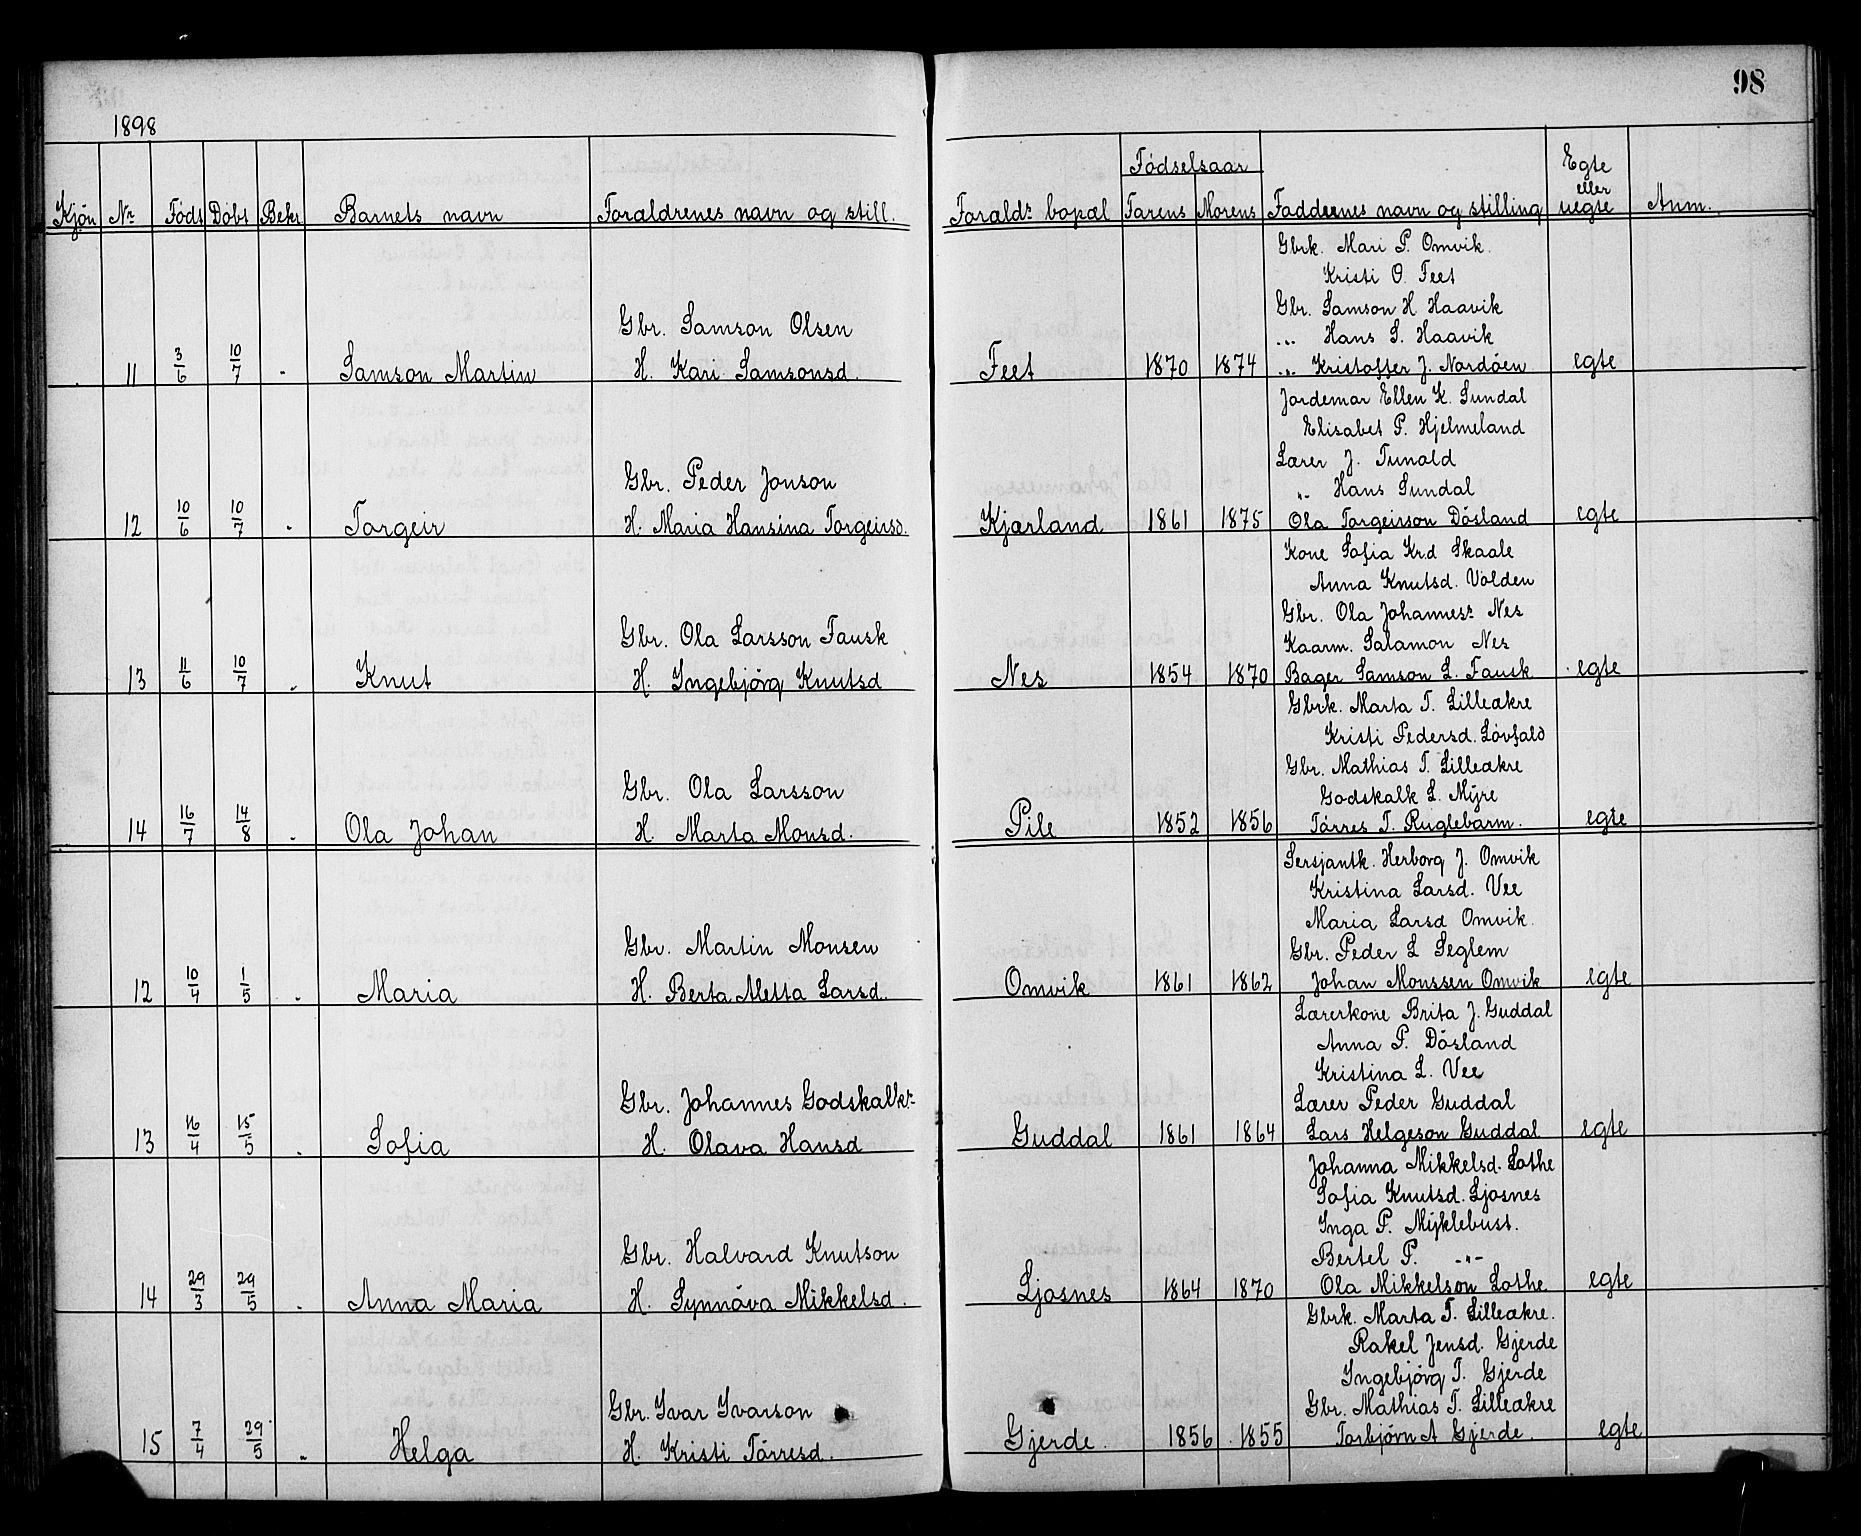 98
1898
Kjøn Nr. Født Døbt Bekr Barnets navn Foraldrenes navn og still. Forald: bopæl Fødselsaar Farens Morens Faddernes navn og stilling Egte eller uegte Anm.
Gbrk. Mari P. Omvik.
Kristi O. Feet
Gbr. Samson H Haavik
„ Hans S. Haavik
Gbr. Samson Olsen
11 3/6 10/7 Samson Martin H. Kari Samsonsd. Feet 1870 1874 „ Kristoffer J. Nordöen egte
Jordemor Ellen K. Sundal
Elisabet P. Hjelmeland
Lærer J. Tunold
„ Hans Sundal
Gbr. Peder Jonson
12 10/6 10/7 Torgeir H. Maria Hansina Torgeirsd. Kjærland 1861 1875 Ola Torgeirson Dösland egte
Kone Sofia Kr.d Skaale
Anna Knutsd. Volden
Gbr. Ola Johanness: Nes
Kaarm. Salamon Nes
Gbr. Ola Larsson Fausk
13 11/6 10/7 Knut H. Ingebjörg Knutsd Nes 1854 1870 Bager Samson L. Fausk egte
Gbrk. Marta T. Lilleakre
Kristi Pedersd. Lövfald
Gbr. Mathias T. Lilleakre
Godskalk L. Myre
Gbr. Ola Larsson
14 16/7 14/8 Ola Johan H. Marta Monsd. Pile 1852 1856 Törres T. Ruglebarm. egte
Sersjantk. Herborg J. Omvik
Kristina Larsd. Vee
Maria Larsd Omvik.
Gbr. Peder L Seglem
Gbr. Martin Monsen
12 10/4 1/5 Maria H. Berta Metta Larsd. Omvik 1861 1862 Johan Monssen Omvik egte
Lærerkone Brita J. Guddal
Anna P. Dösland
Kristina L. Vee
Lærer Peder Guddal
Gbr. Johannes Godskalks:
13 16/4 15/5 Sofia H. Olava Hansd Guddal 1861 1864 Lars Helgeson Guddal egte
Johanna Mikkelsd. Lothe
Sofia Knutsd. Ljosnes
Inga P. Myklebust.
Bertel P. -"-
Gbr. Halvard Knutson
14 29/3 29/5 Anna Maria H. Synnöva Mikkelsd. Ljosnes 1864 1870 Ola Mikkelson Lothe egte
Gbrk. Marta T. Lilleakre.
Rakel Jensd. Gjerde
Ingebjörg T. Gjerde
Gbr. Mathias T. Lilleakre
Gbr. Ivar Ivarson
15 7/4 29/5 Helga H. Kristi Törresd. Gjerde. 1856 1855 Torbjörn A Gjerde. egte